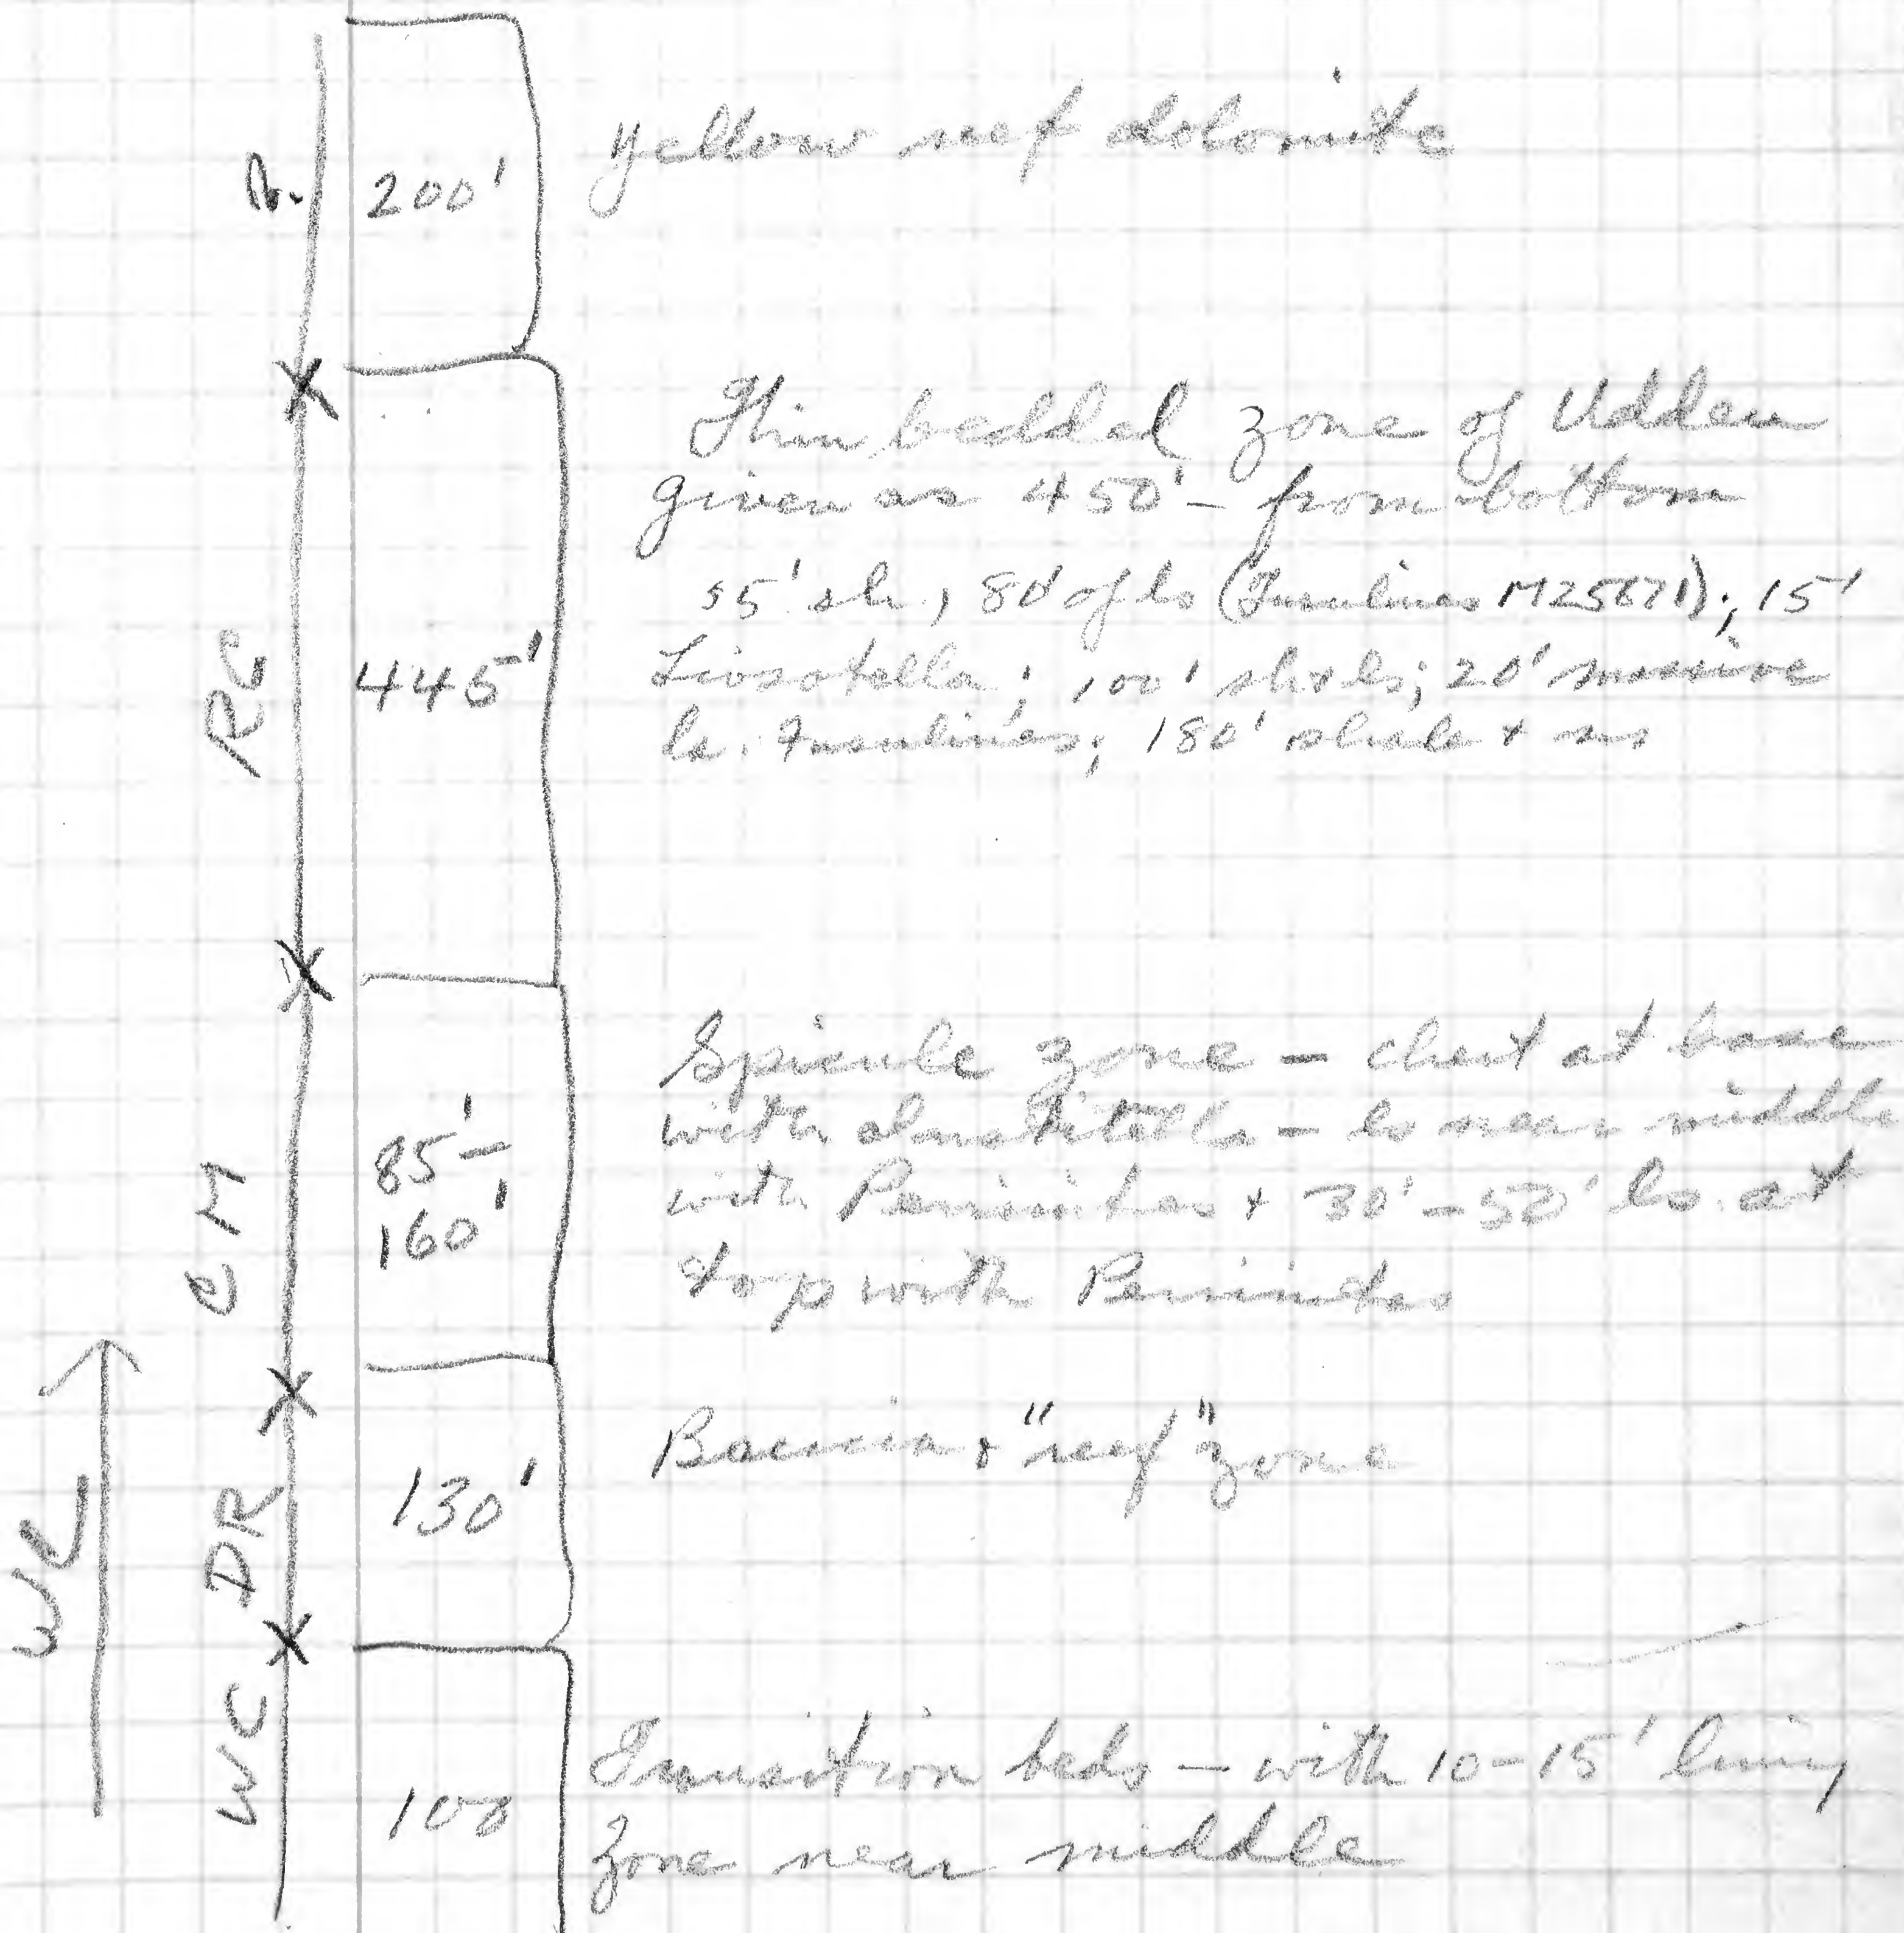 200'
yellow reef dolomite
Thin bedded zone of Udden
given as 450' - from bottom
55' sh, 80' of ls (Fusulines M25671); 15'
RC
445'
100' sh & ls; 20' massive
ls. Fusulines; 180' shale + ss
Spicule zone - chert at base
with - ls near middle
85'-
160'
with Perrinites + 30'-50' ls. at
top with Perrinites
CM
Breccia + "reef" zone
130'
DR
WL
WC
100
Transition beds - with 10-15' limy
zone near middle